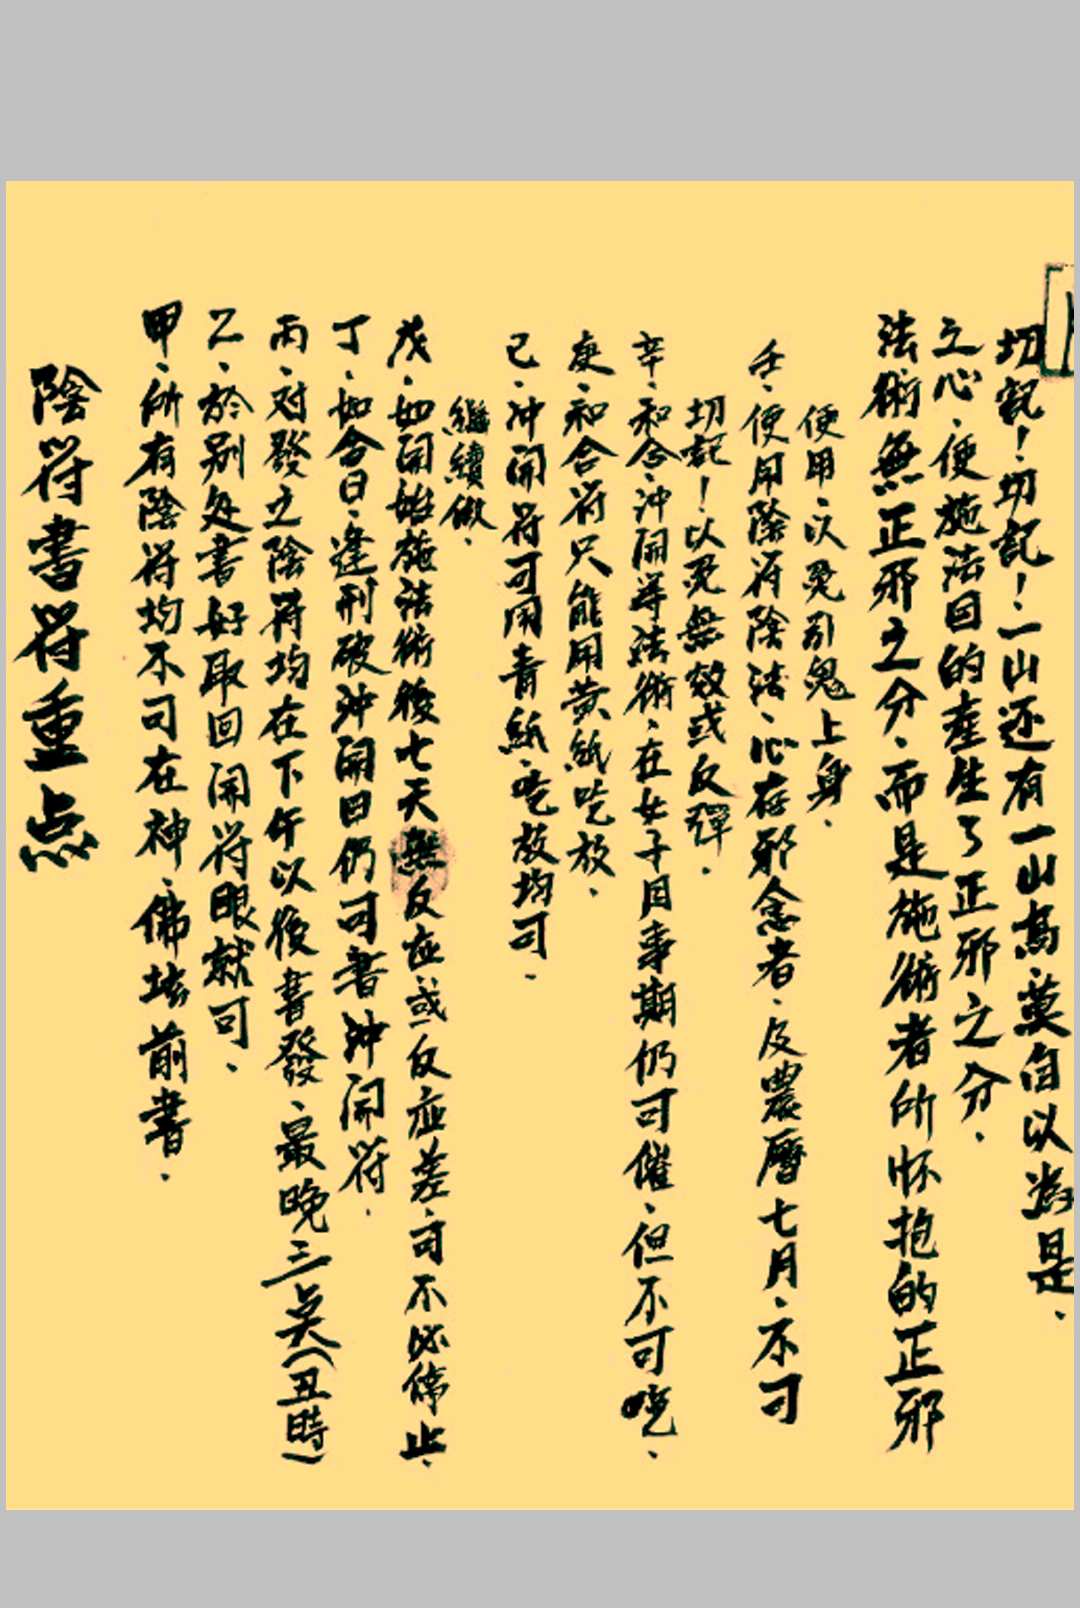 陰符書符重点
甲、所有陰符均不可在神、佛坛前書.
乙、於别处書好取回開符眼就可、
丙、对發之陰符均在下午以後書發、最晚三点(丑時)
丁、如合日、逢刑破沖開日仍可書沖開符.
戊、如開始施法術後七天無反应、或反应差、可不必停止、
繼續做.
己、冲開符可用青紙、吃放均可.
庚、和合符只能用黄紙吃放.
辛、和合、冲開等法術、在女子月事期仍可催、但不可吃、
切記!以免無效或反彈.
壬、便用陰符陰法、心存邪念者、及農曆七月、不可
便用、以免引鬼上身.
法術無正邪之分、而是施術者所怀抱的正邪
之心、便施法目的產生了正邪之分.
切記!切記!一山还有一山高、莫自以為是.